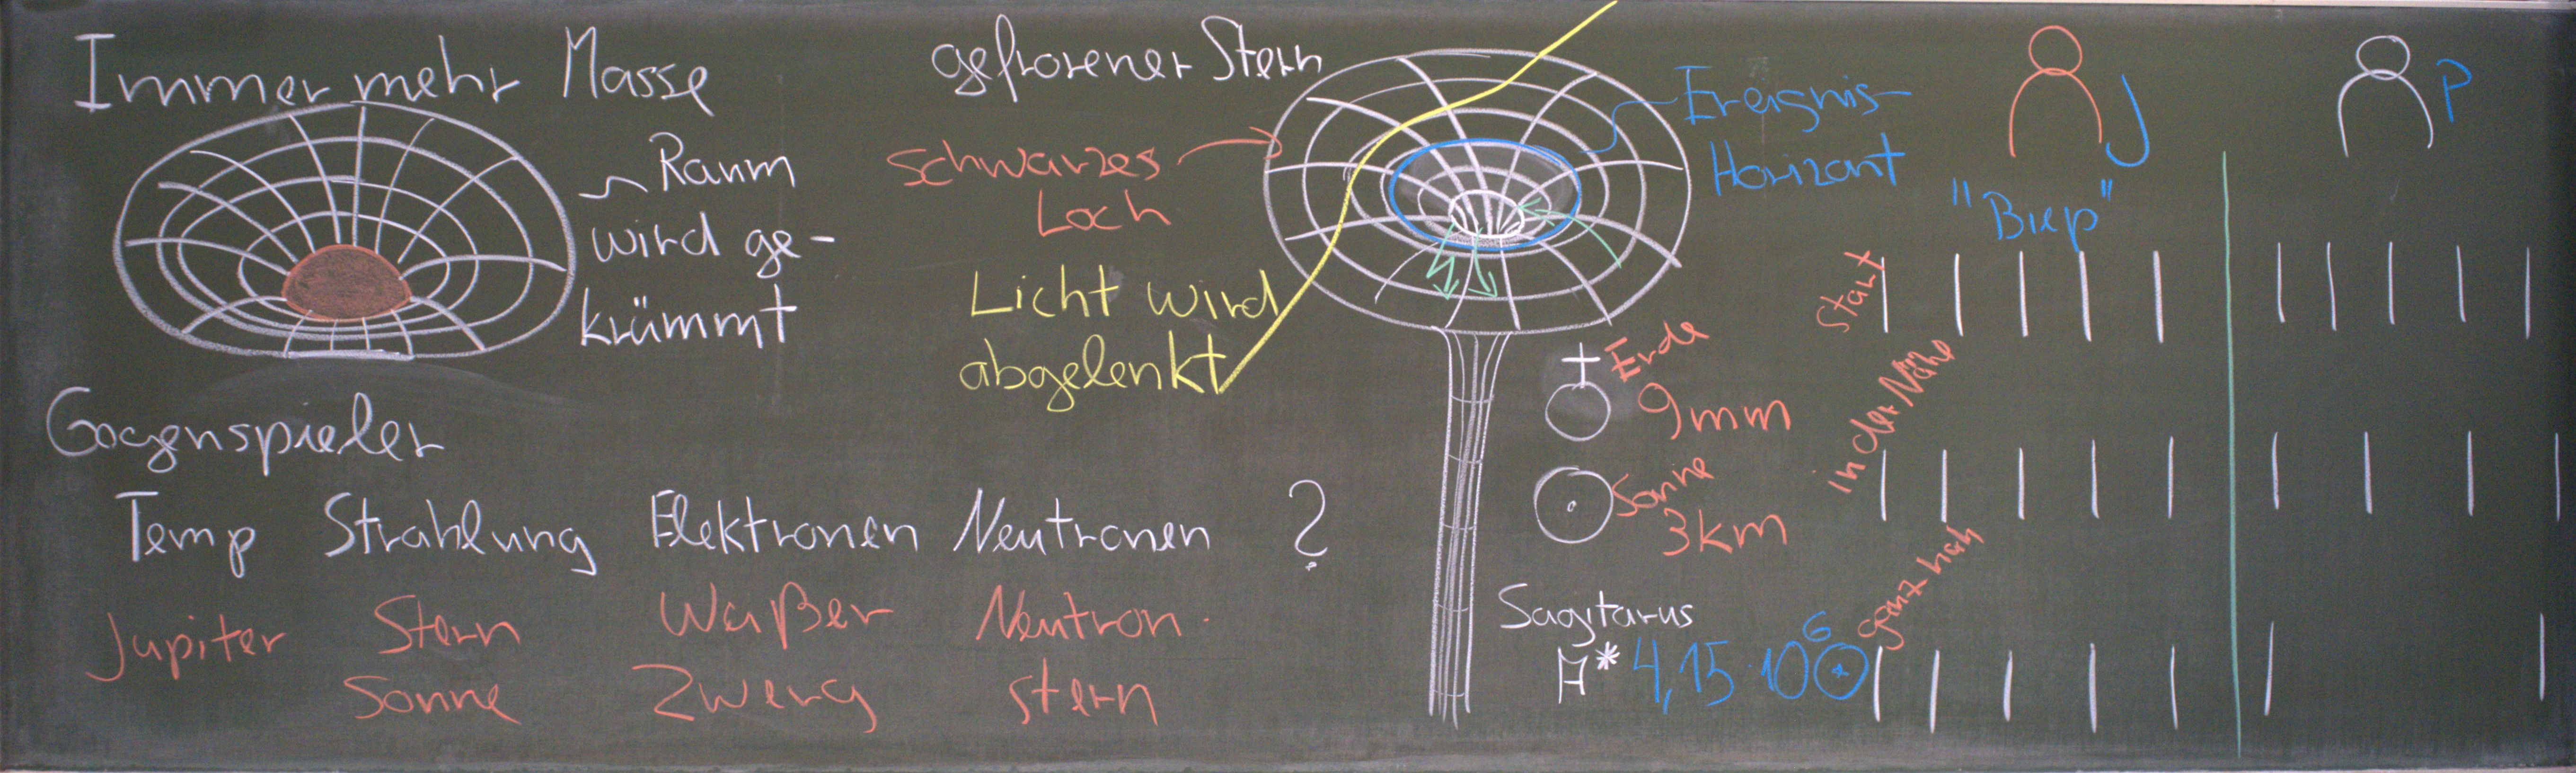 Immer mehr Masse
Raum
wird ge-
krümmt
Gegenspieler
Temp Strahlung Elektronen Neutronen ?
Jupiter Stern Weißer Neutron.
Sonne Zwerg stern
gefrorener Stern
schwarzes
Loch
Licht wird
abgelenkt
Ereignis-
Horizont
Erde
9mm
Sonne
3km
Sagitarus
A* 4,15·10⁶
J P
"Biep"
Start
in der Nähe
ganz nah